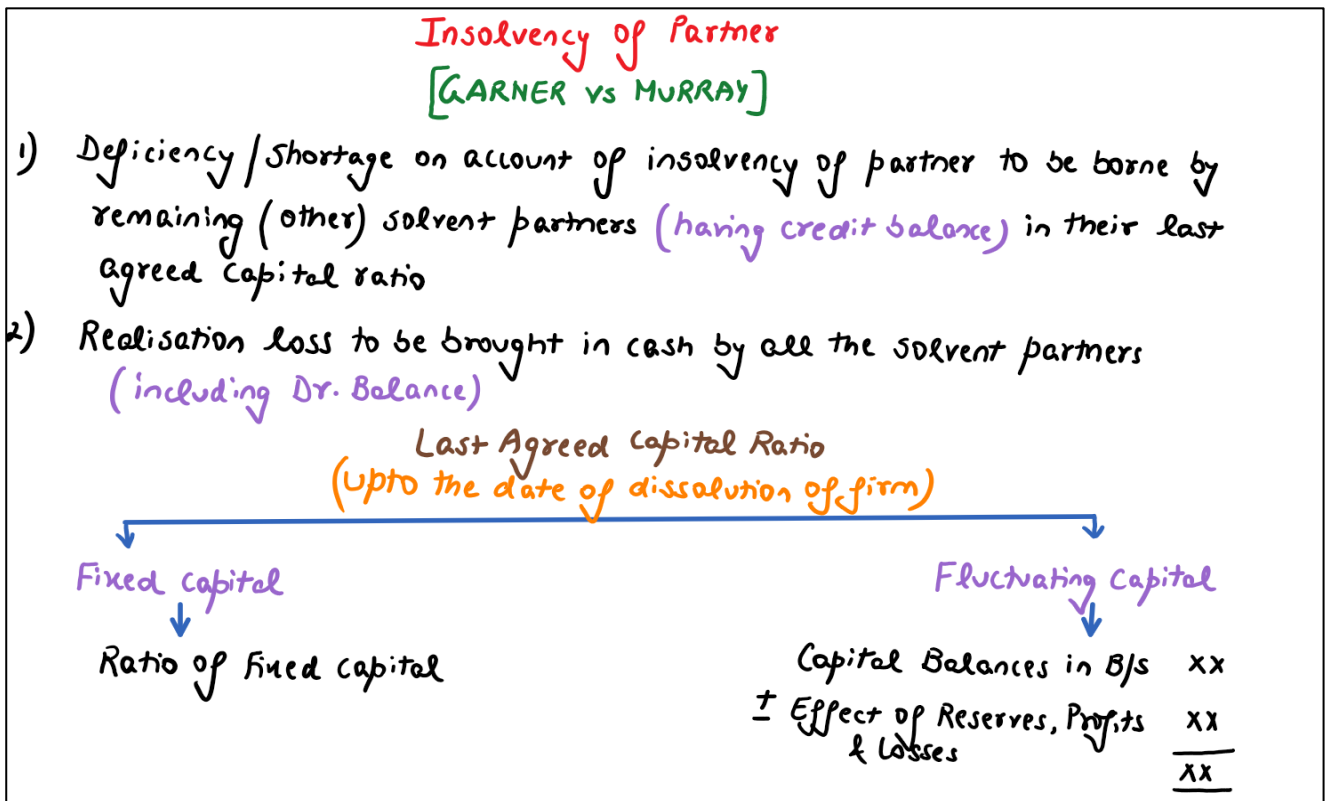 Insolvency of Partner
[GARNER vs MURRAY]
1) Deficiency/Shortage on account of insolvency of partner to be borne by
remaining (other) solvent partners (having credit balance) in their last
agreed capital ratio
2) Realisation loss to be brought in cash by all the solvent partners
(including Dr. Balance)
Last Agreed Capital Ratio
(upto the date of dissalution of firm)
Fixed capital
Fluctuating Capital
Ratio of Fixed capital
Capital Balances in B/s xx
± Effect of Reserves, Profits xx
& Losses
xx